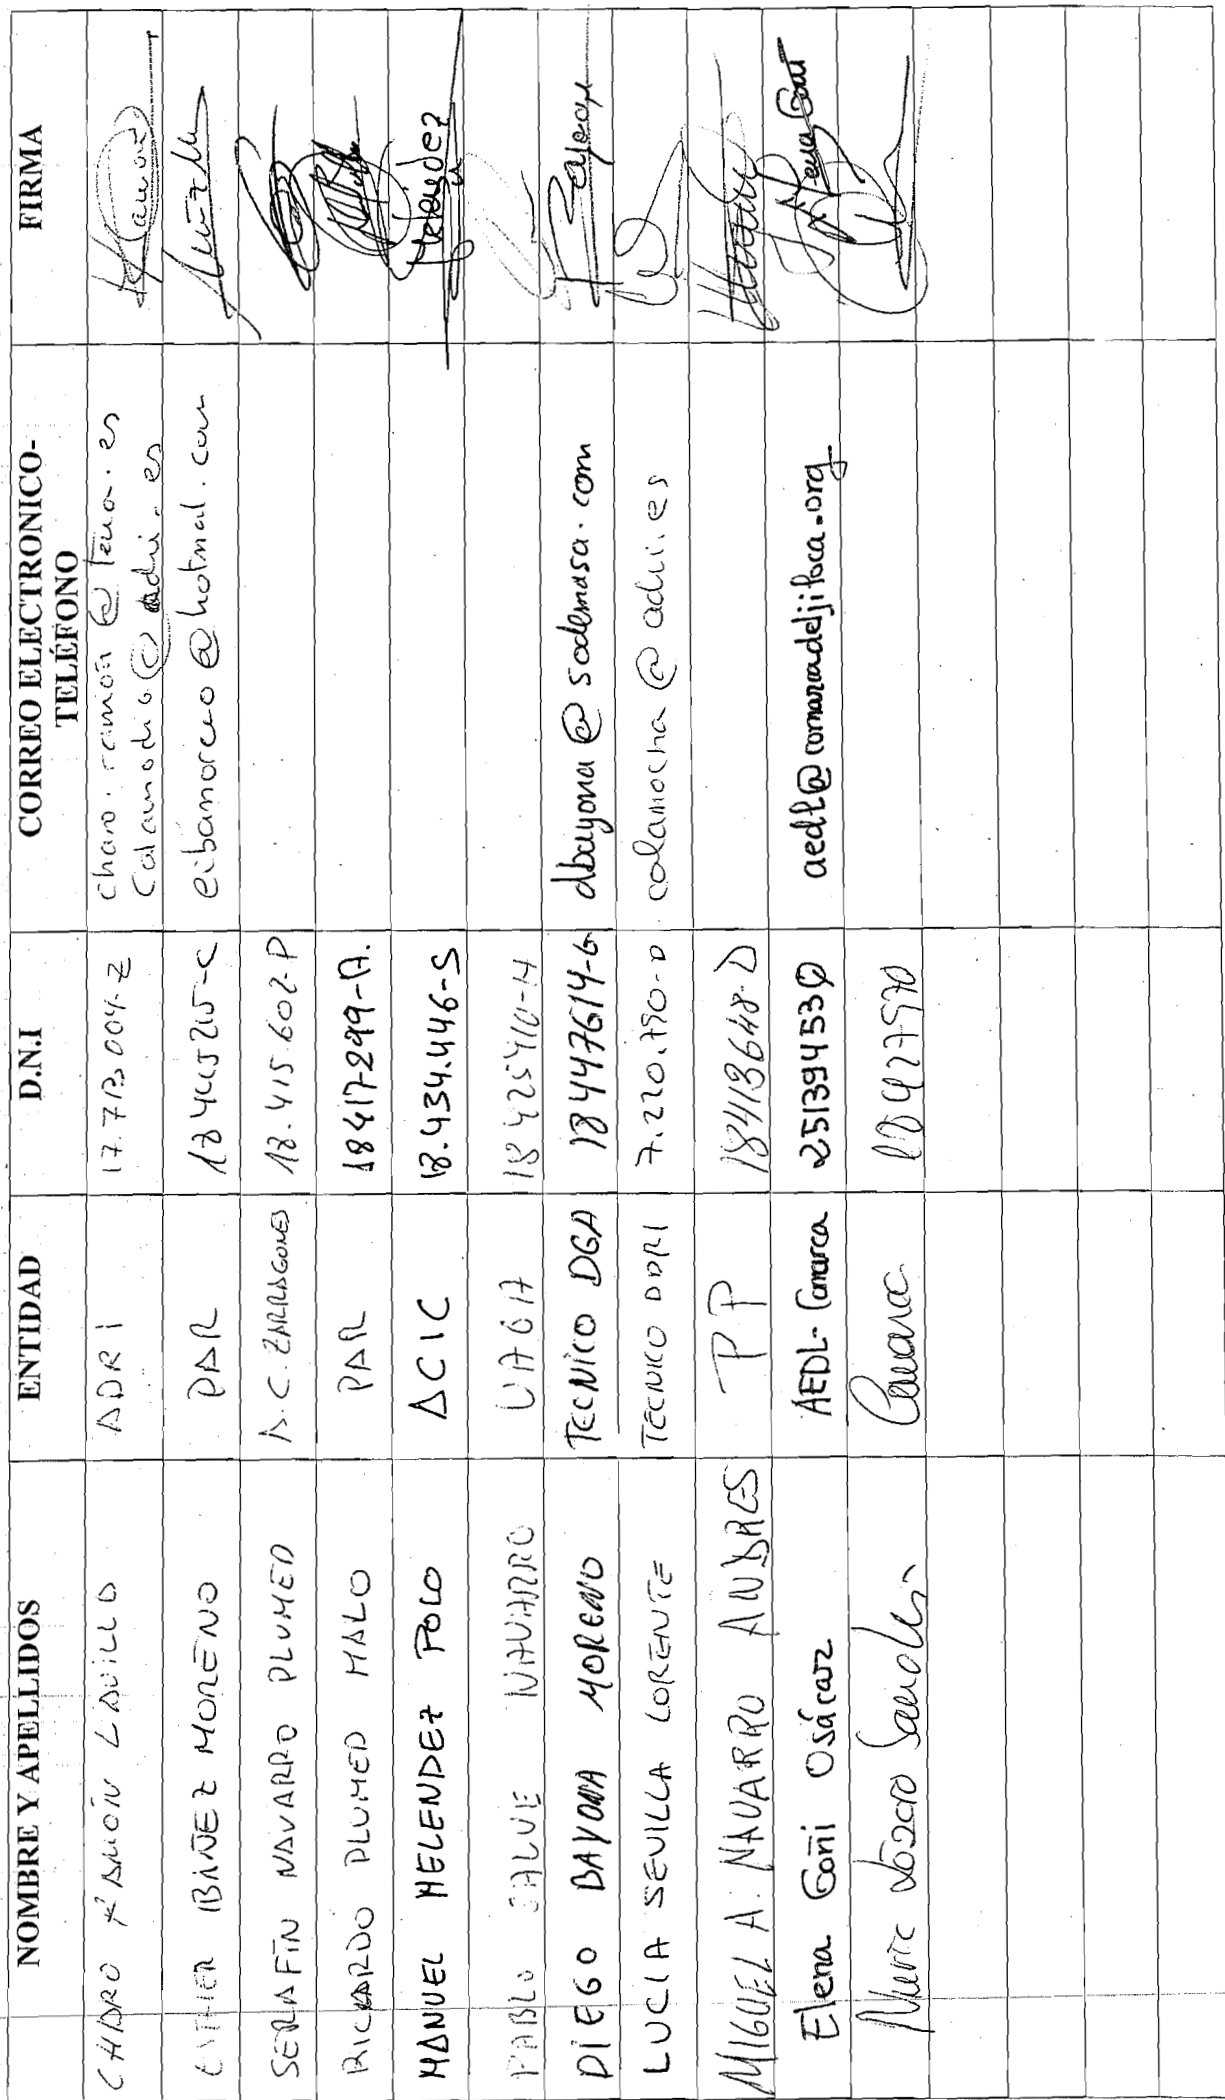 NOMBRE Y APELLIDOS ENTIDAD D.N.I CORREO ELECTRONICO- FIRMA
TELÉFONO
CHARO RAMÓN ADRI 17.713.004-Z charo.ramon@
@adri.es
ESTHER IBAÑEZ MORENO PAR eibamoreno@hotmail.com
SERAFÍN NAVARRO PLUMED A.C. ZARRAGONES 18.415.602-P
RICARDO PLUMED MALO PAR 18417299-A.
MANUEL MELENDEZ POLO ACIC 18.434.446-S Meléndez
PABLO SALVE NAVARRO UAGA 18425410-H
DIEGO BAYONA MORENO TECNICO DGA 18447614-G dbayona@sodemasa.com Bayona
LUCIA SEVILLA LORENTE TECNICO ADRI 7.220.790-D calamocha@adri.es
MIGUEL A. NAVARRO ANDRES PP 18413648-D
Elena Goñi Osácar AEDL- Comarca 25139453Q aedl@comarcadeljiloca.org Elena Goñi
Comarca